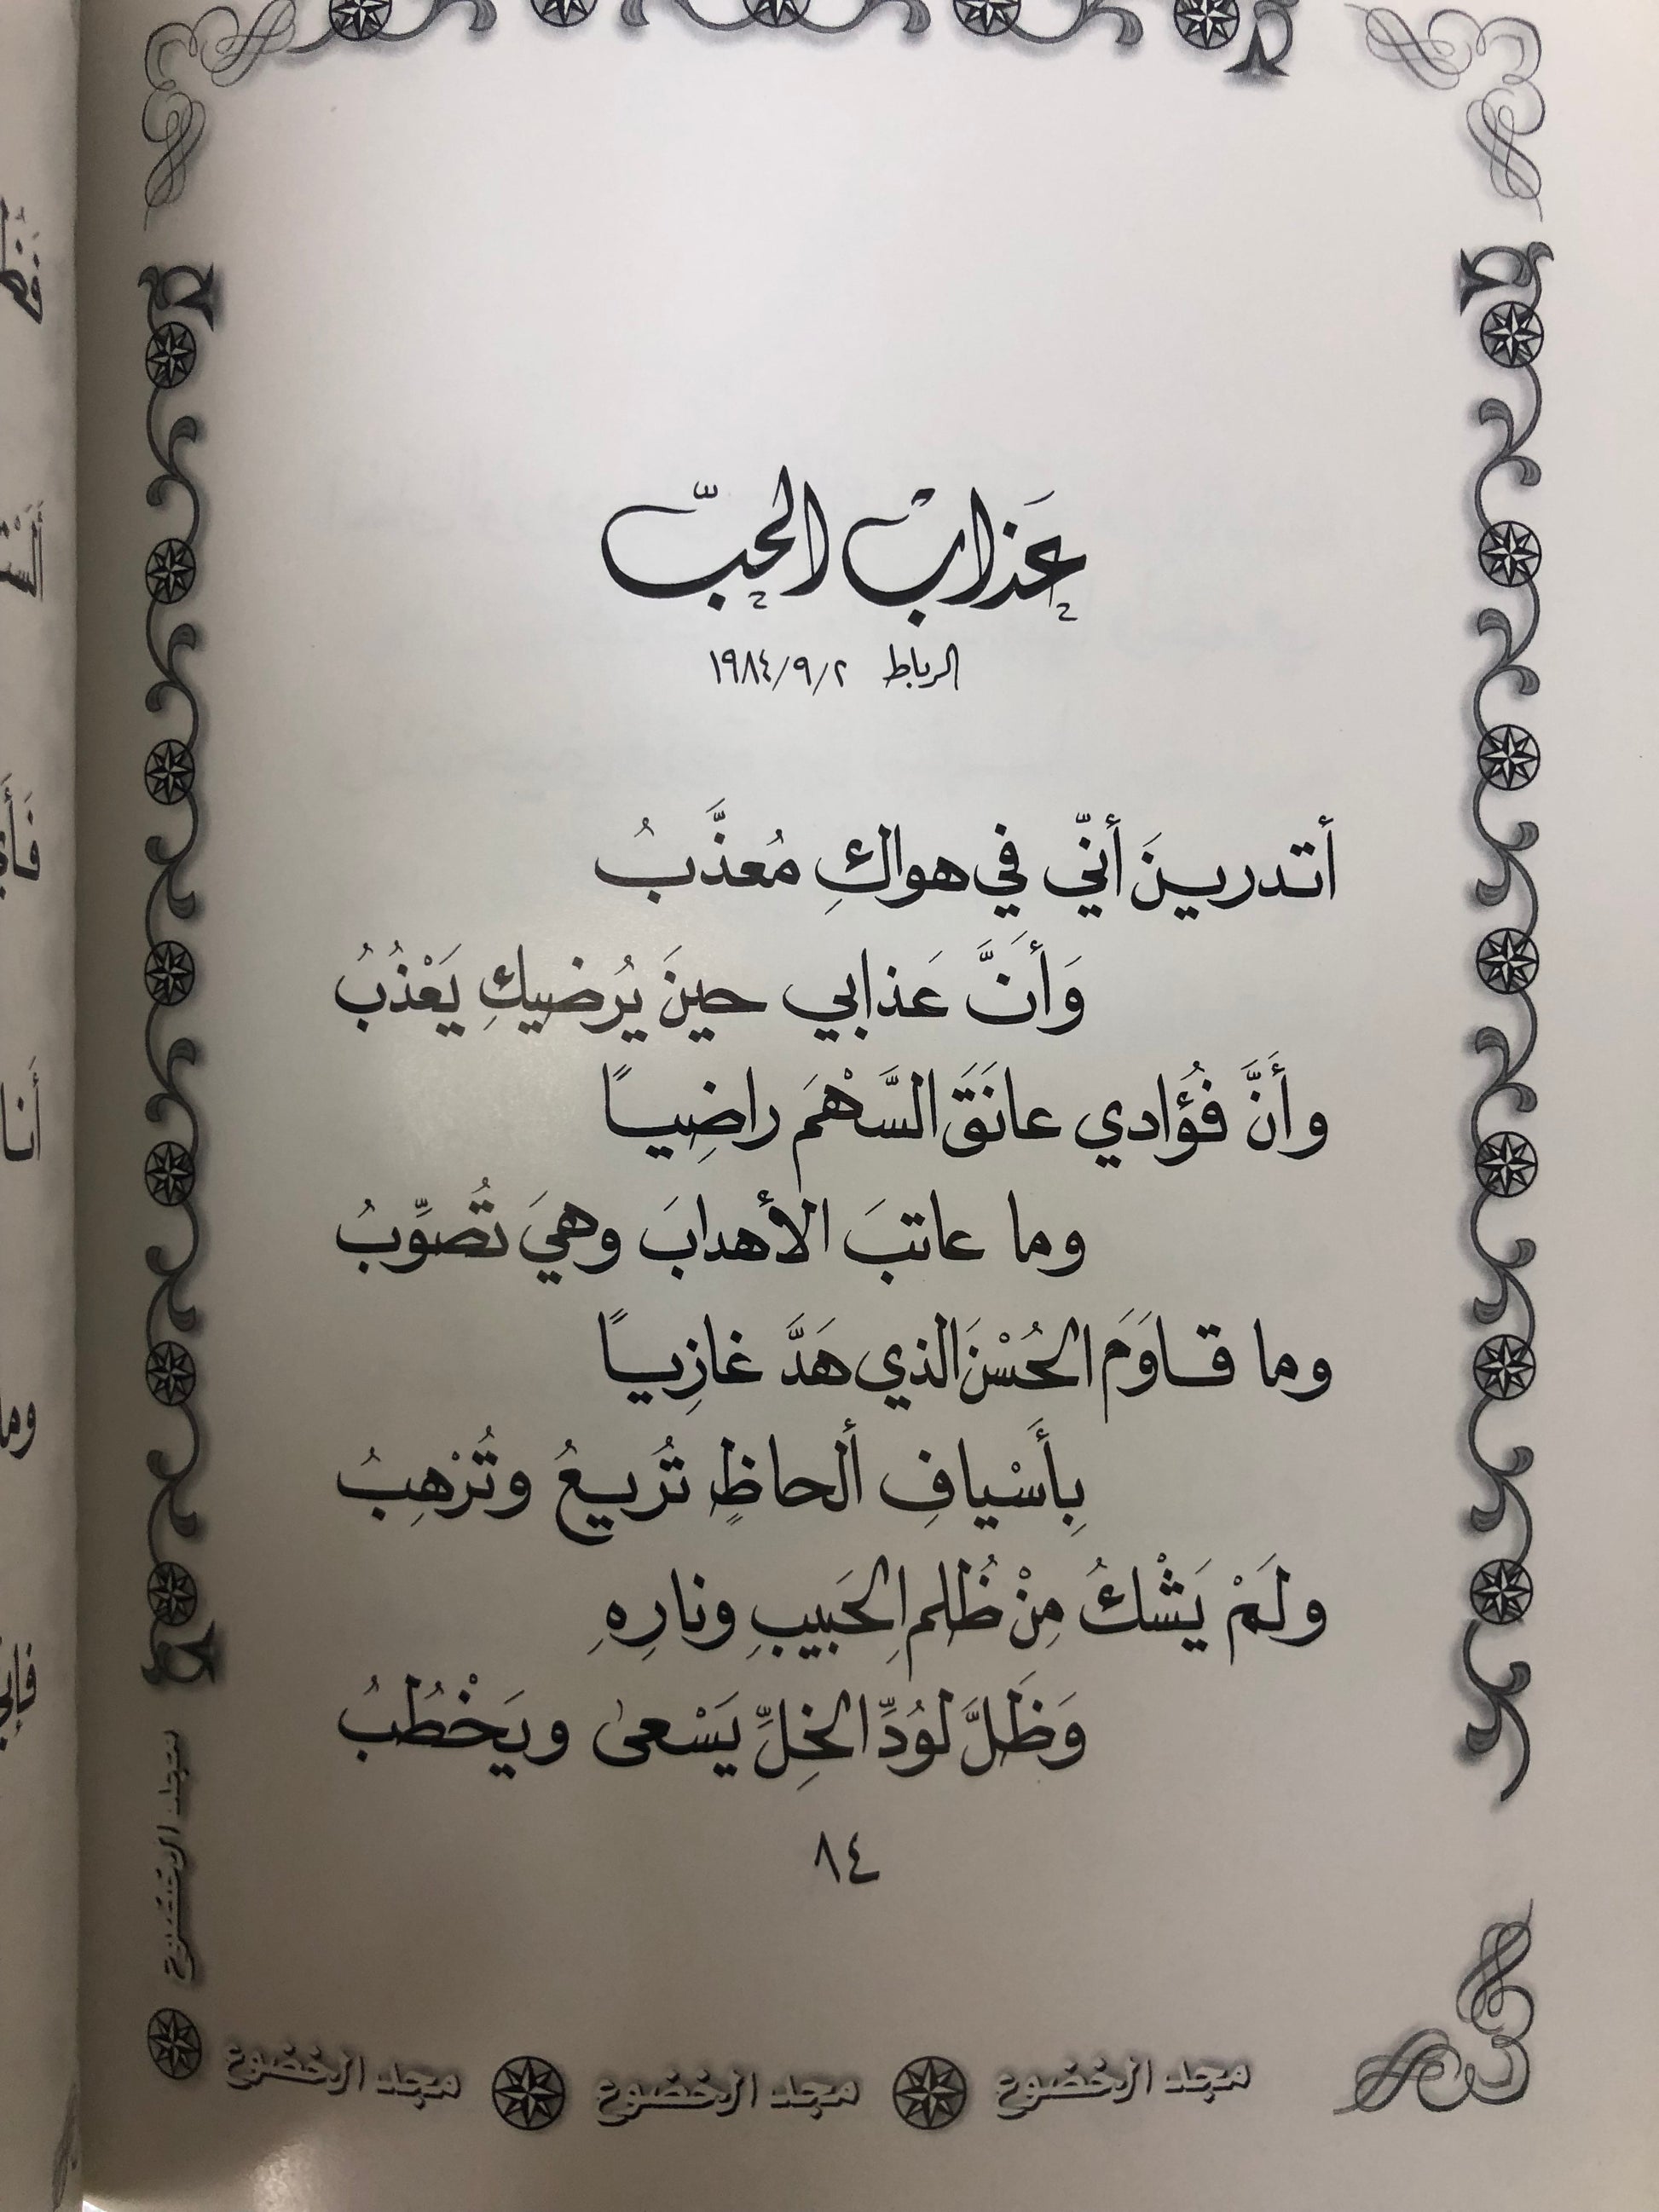 عَذابْ الحبّ
الرباط ٢/٩/١٩٨٤
أتدرينَ أنّي في هواكِ مُعذَّبُ
وَأَنَّ عَذابي حينَ يُرضيكِ يَعْذُبُ
وأَنَّ فُؤادي عانَقَ السَّهْمَ راضِياً
وما عاتبَ الأهدابَ وهيَ تُصوِّبُ
وما قاوَمَ الحُسْنَ الذي هَدَّ غازِياً
بِأَسْيافِ ألحاظٍ تُريعُ وتُرْهِبُ
ولَمْ يَشْكُ مِنْ ظُلمِ الحَبيبِ ونارِهِ
وَظَلَّ لوُدِّ الخِلِّ يَسْعىٰ ويَخْطُبُ
٨٤
مجد الخضوع
مجد الخضوع مجد الخضوع مجد الخضوع